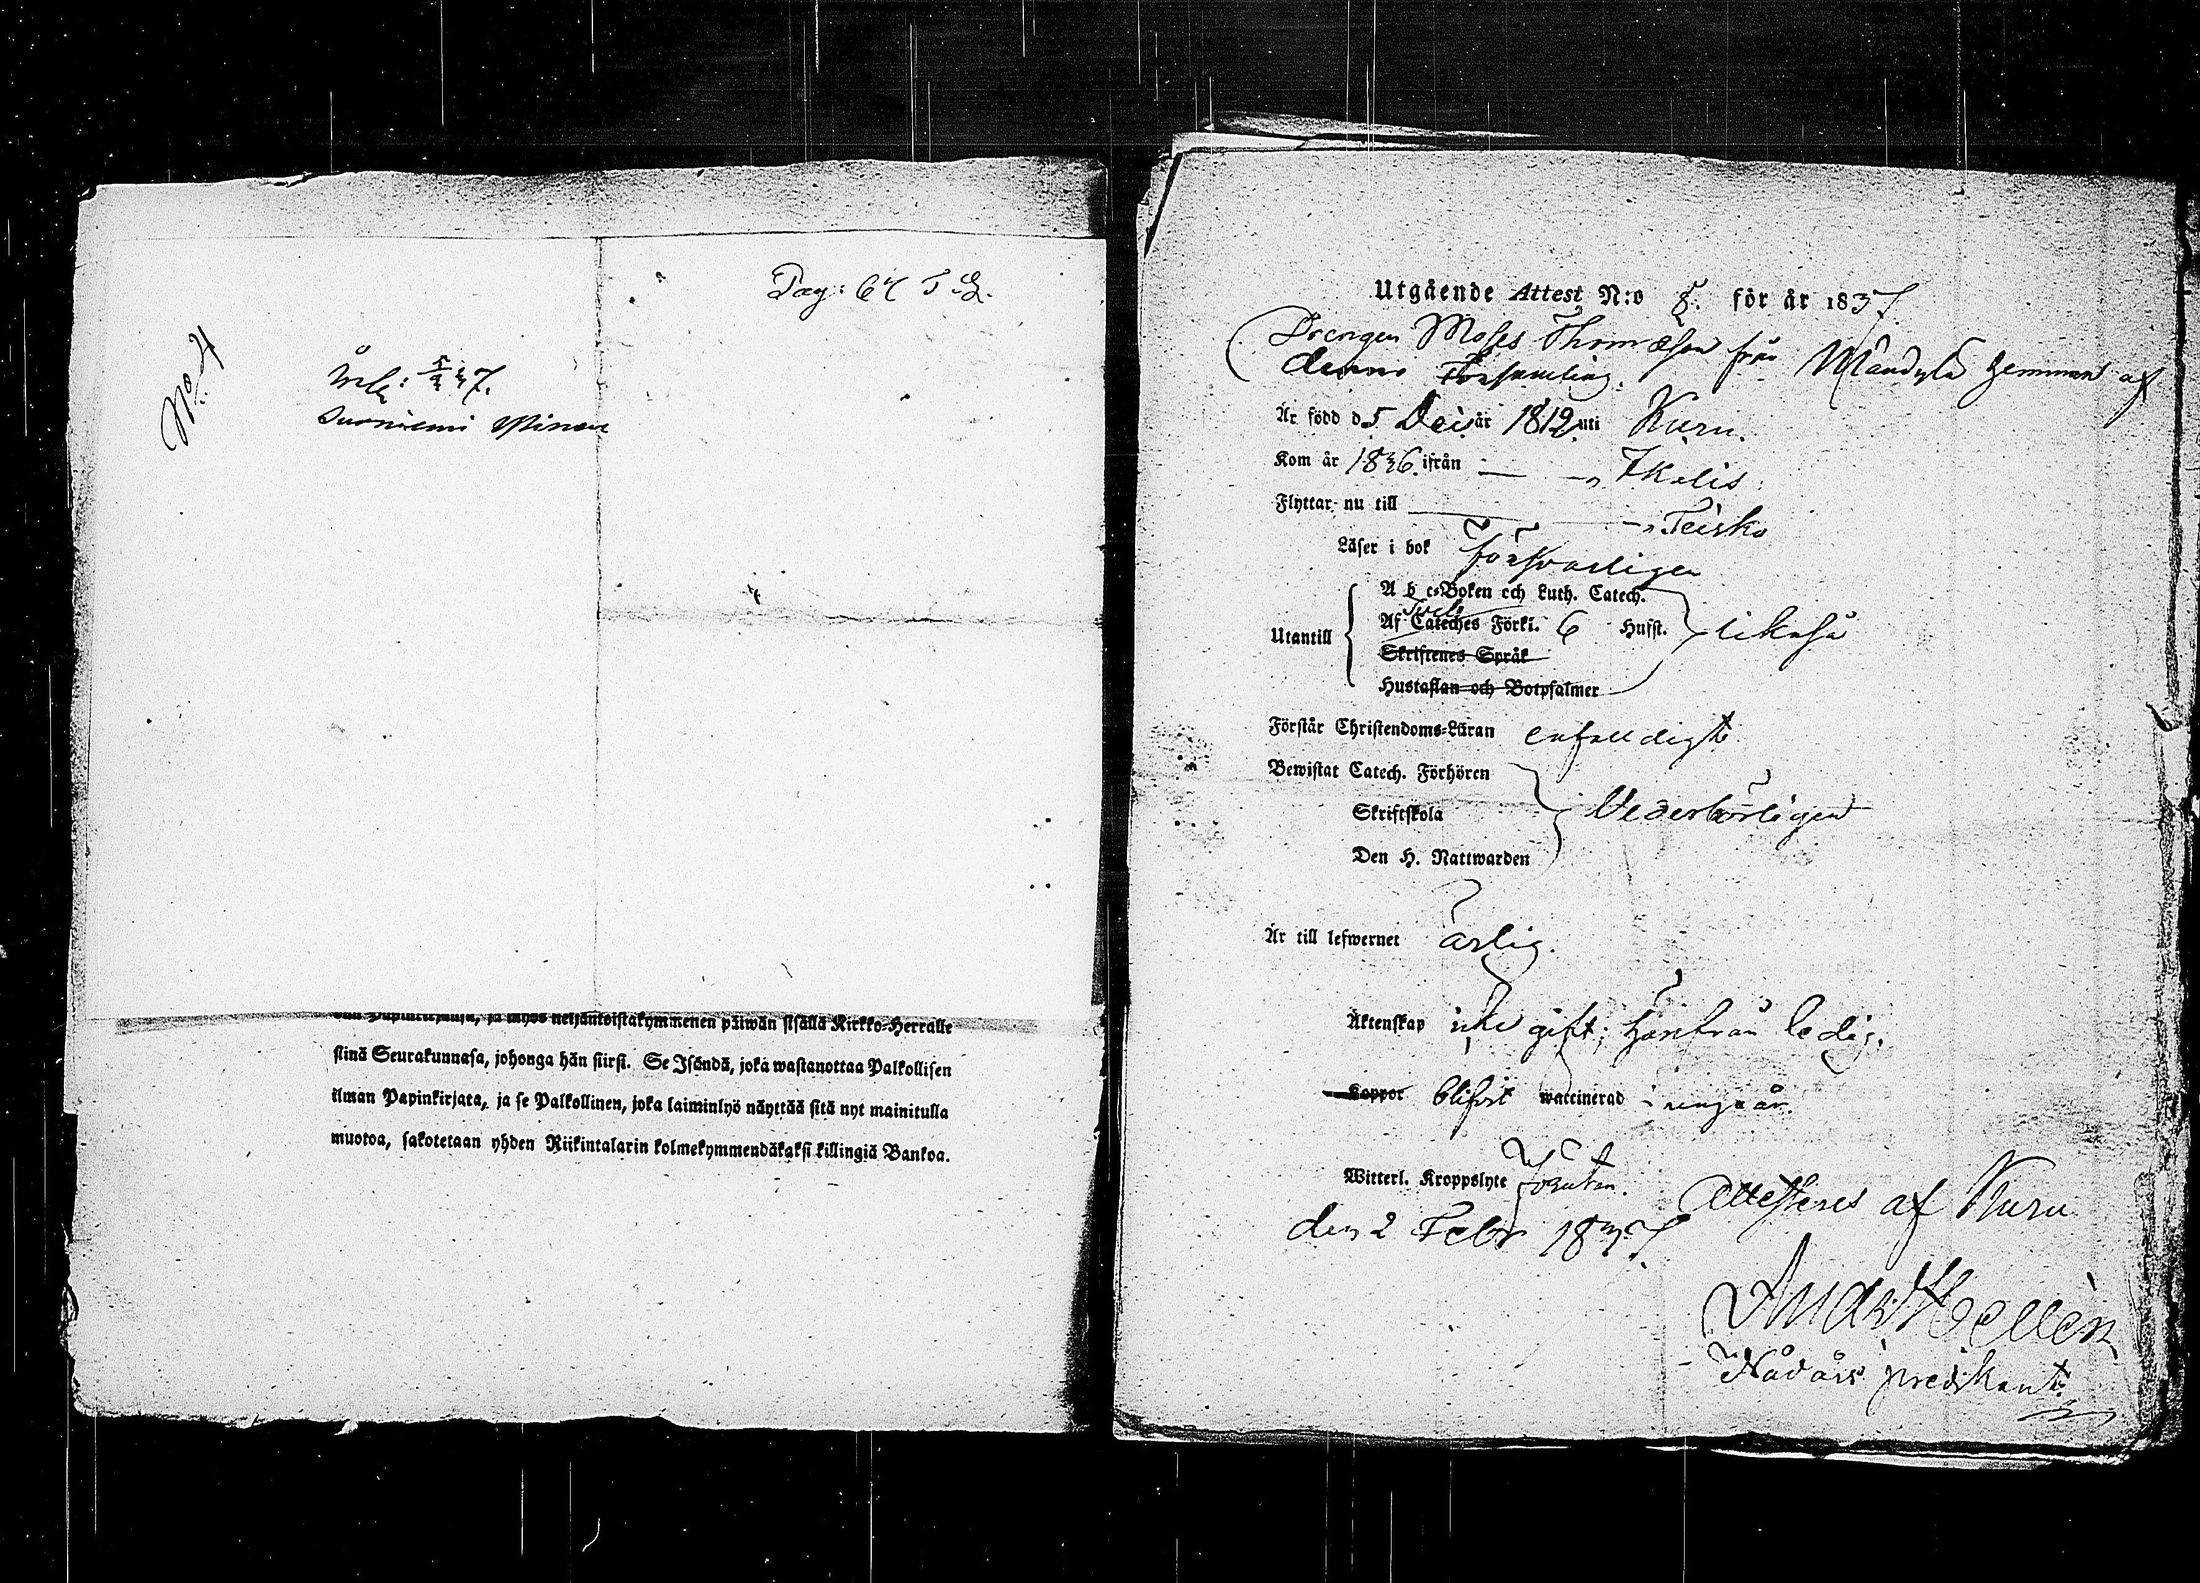 Pag: 67 T. L.
No. 4
Suoniemi
päiwän sisällä Kirkko-Herralle
siinä Seurakunnasa, johonga hän siirsi. Se Isändä, joka wastanottaa Palkollisen
ilman Papinkirjata, ja se Palkollinen, joka laiminlyö näyttää sitä nyt mainitulla
muotoa, sakotetaan yhden Riikintalarin kolmekymmendäkaksi killingiä Bankoa.
Utgående Attest N:o 8. för år 1837.
Drengen Moses Thomæson från hemman af
denna Församling.
Är född d. 5 Dec. år 1812 uti Kuru.
Kom år 1836 ifrån — — „ Ikalis.
Flyttar nu till — — „ Teisko
Läser i bok Försvarligen
A b c-Boken och Luth. Catech.
Utantill Af Svebel. Cateches Förkl. 6 Hufst. likaså
Skriftenes Språk
Hustaflan och Botpsalmer
Förstår Christendoms-Läran enfalldigt
Bewistat Catech. Förhören
Skriftskola Vederbörligen
Den H. Nattwarden
Är till lefwernet ärlig.
Äktenskap icke gift; härifrån ledig.
Koppor blifvit waccinerad i unga år.
Witterl. Kroppslyte Förutan. Attesteras af Kuru
den 2 Febr 1837.
And. Hellén
Nådårs predikant.